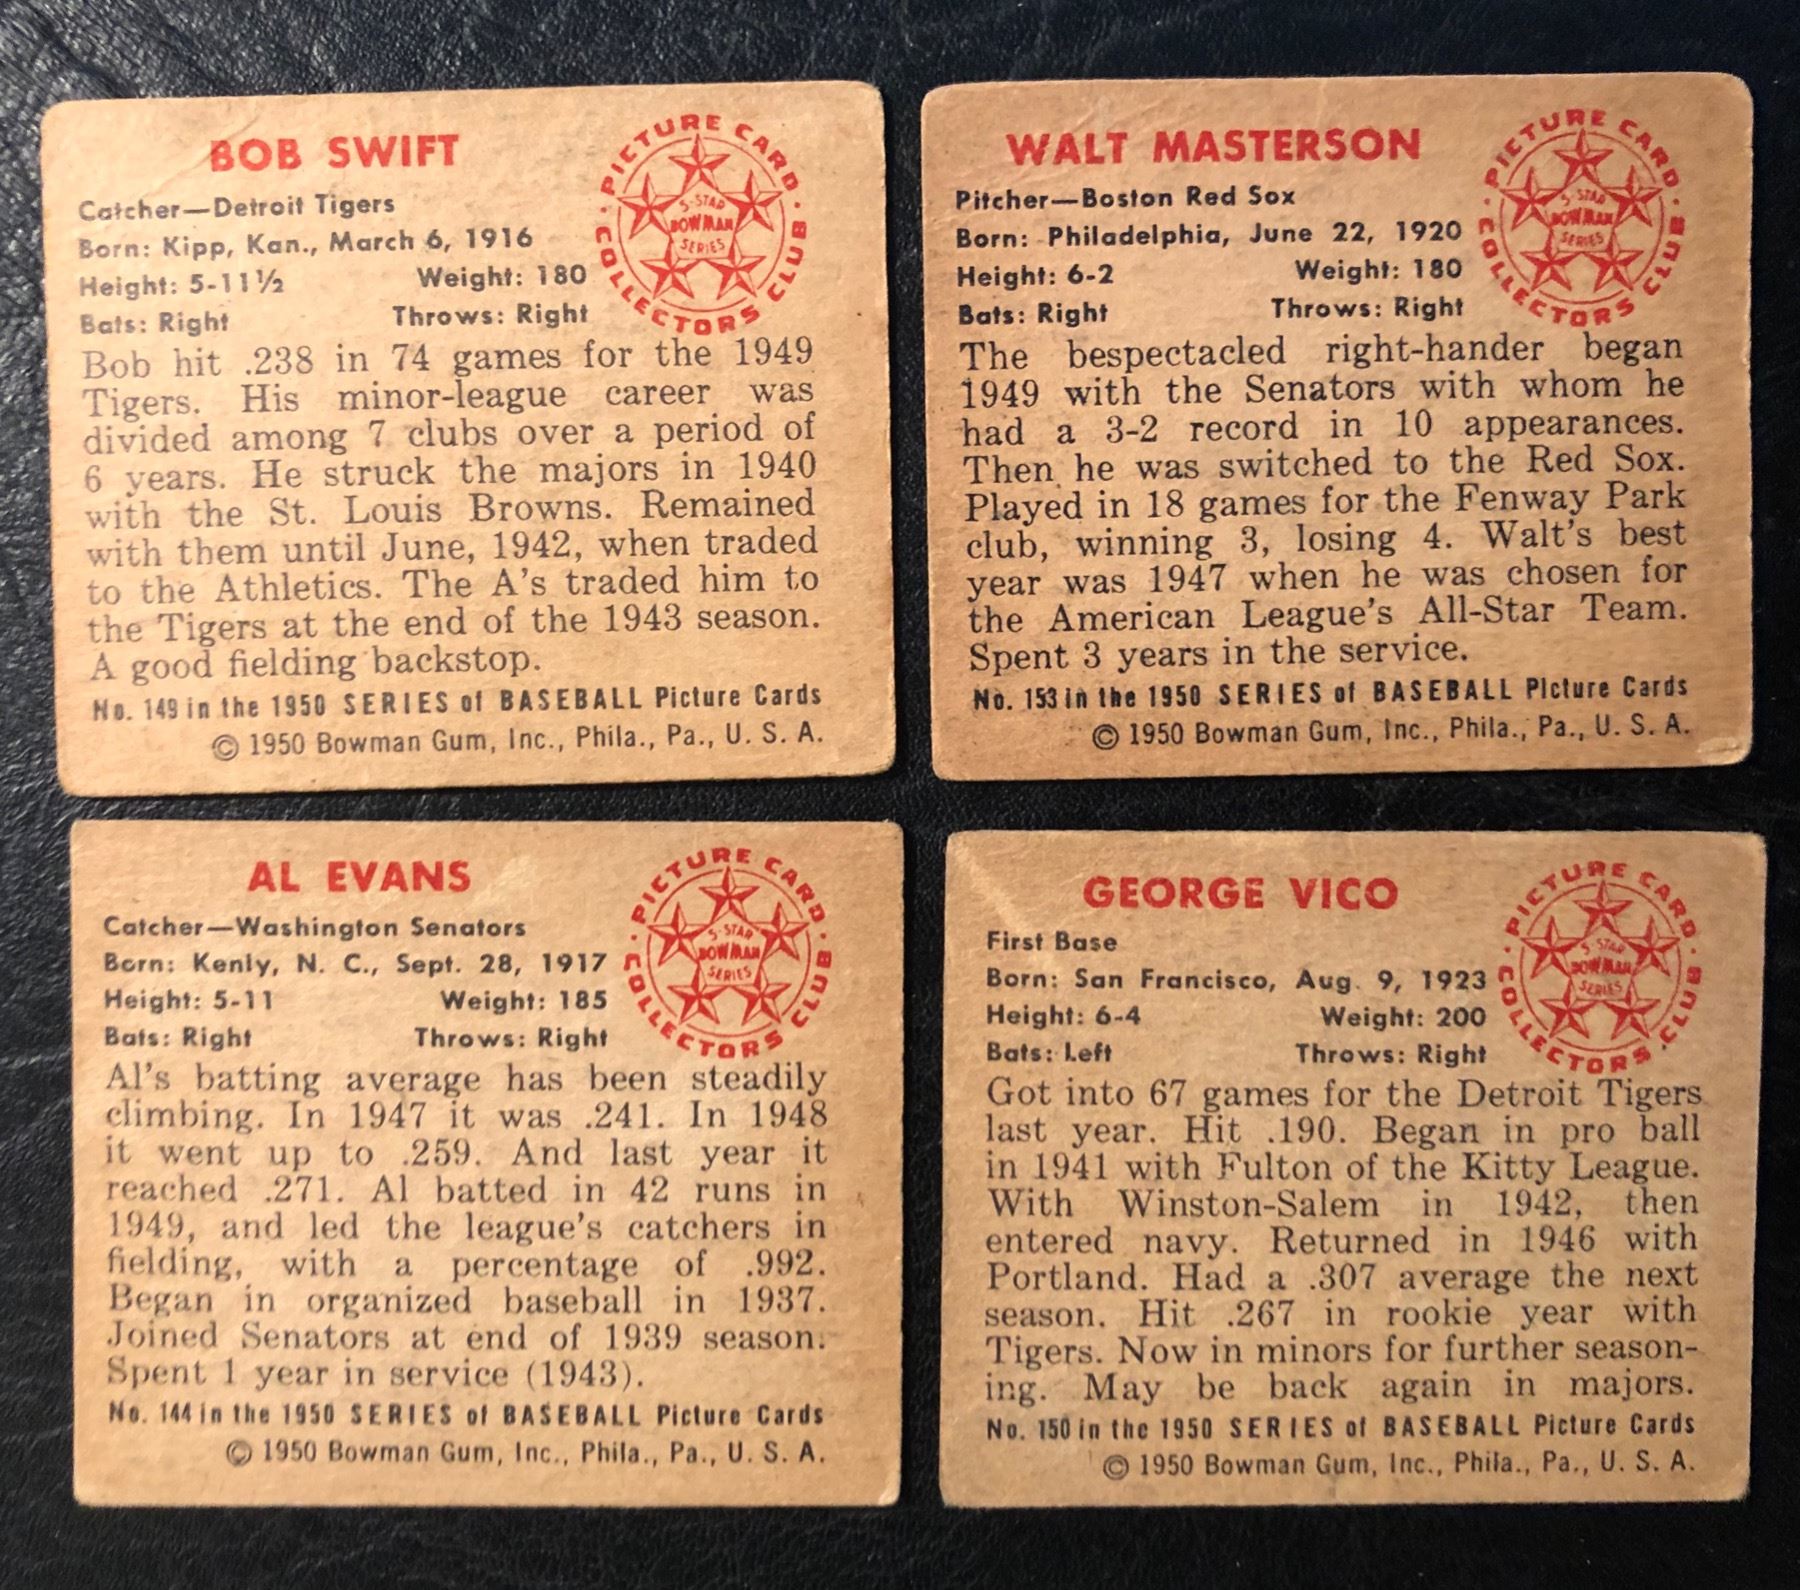 BOB SWIFT
Catcher—Detroit Tigers
Born: Kipp, Kan., March 6, 1916
Height: 5-11½ Weight: 180
Bats: Right Throws: Right
PICTURE CARD COLLECTORS CLUB
5-STAR
BOWMAN
SERIES
Bob hit .238 in 74 games for the 1949
Tigers. His minor-league career was
divided among 7 clubs over a period of
6 years. He struck the majors in 1940
with the St. Louis Browns. Remained
with them until June, 1942, when traded
to the Athletics. The A's traded him to
the Tigers at the end of the 1943 season.
A good fielding backstop.
No. 149 in the 1950 SERIES of BASEBALL Picture Cards
© 1950 Bowman Gum, Inc., Phila., Pa., U. S. A.
WALT MASTERSON
Pitcher—Boston Red Sox
Born: Philadelphia, June 22, 1920
Height: 6-2 Weight: 180
Bats: Right Throws: Right
PICTURE CARD COLLECTORS CLUB
5-STAR
BOWMAN
SERIES
The bespectacled right-hander began
1949 with the Senators with whom he
had a 3-2 record in 10 appearances.
Then he was switched to the Red Sox.
Played in 18 games for the Fenway Park
club, winning 3, losing 4. Walt's best
year was 1947 when he was chosen for
the American League's All-Star Team.
Spent 3 years in the service.
No. 153 in the 1950 SERIES of BASEBALL Picture Cards
© 1950 Bowman Gum, Inc., Phila., Pa., U. S. A.
AL EVANS
Catcher—Washington Senators
Born: Kenly, N. C., Sept. 28, 1917
Height: 5-11 Weight: 185
Bats: Right Throws: Right
PICTURE CARD COLLECTORS CLUB
5-STAR
BOWMAN
SERIES
Al's batting average has been steadily
climbing. In 1947 it was .241. In 1948
it went up to .259. And last year it
reached .271. Al batted in 42 runs in
1949, and led the league's catchers in
fielding, with a percentage of .992.
Began in organized baseball in 1937.
Joined Senators at end of 1939 season.
Spent 1 year in service (1943).
No. 144 in the 1950 SERIES of BASEBALL Picture Cards
© 1950 Bowman Gum, Inc., Phila., Pa., U. S. A.
GEORGE VICO
First Base
Born: San Francisco, Aug. 9, 1923
Height: 6-4 Weight: 200
Bats: Left Throws: Right
PICTURE CARD COLLECTORS CLUB
5-STAR
BOWMAN
SERIES
Got into 67 games for the Detroit Tigers
last year. Hit .190. Began in pro ball
in 1941 with Fulton of the Kitty League.
With Winston-Salem in 1942, then
entered navy. Returned in 1946 with
Portland. Had a .307 average the next
season. Hit .267 in rookie year with
Tigers. Now in minors for further season-
ing. May be back again in majors.
No. 150 in the 1950 SERIES of BASEBALL Picture Cards
© 1950 Bowman Gum, Inc., Phila., Pa., U. S. A.